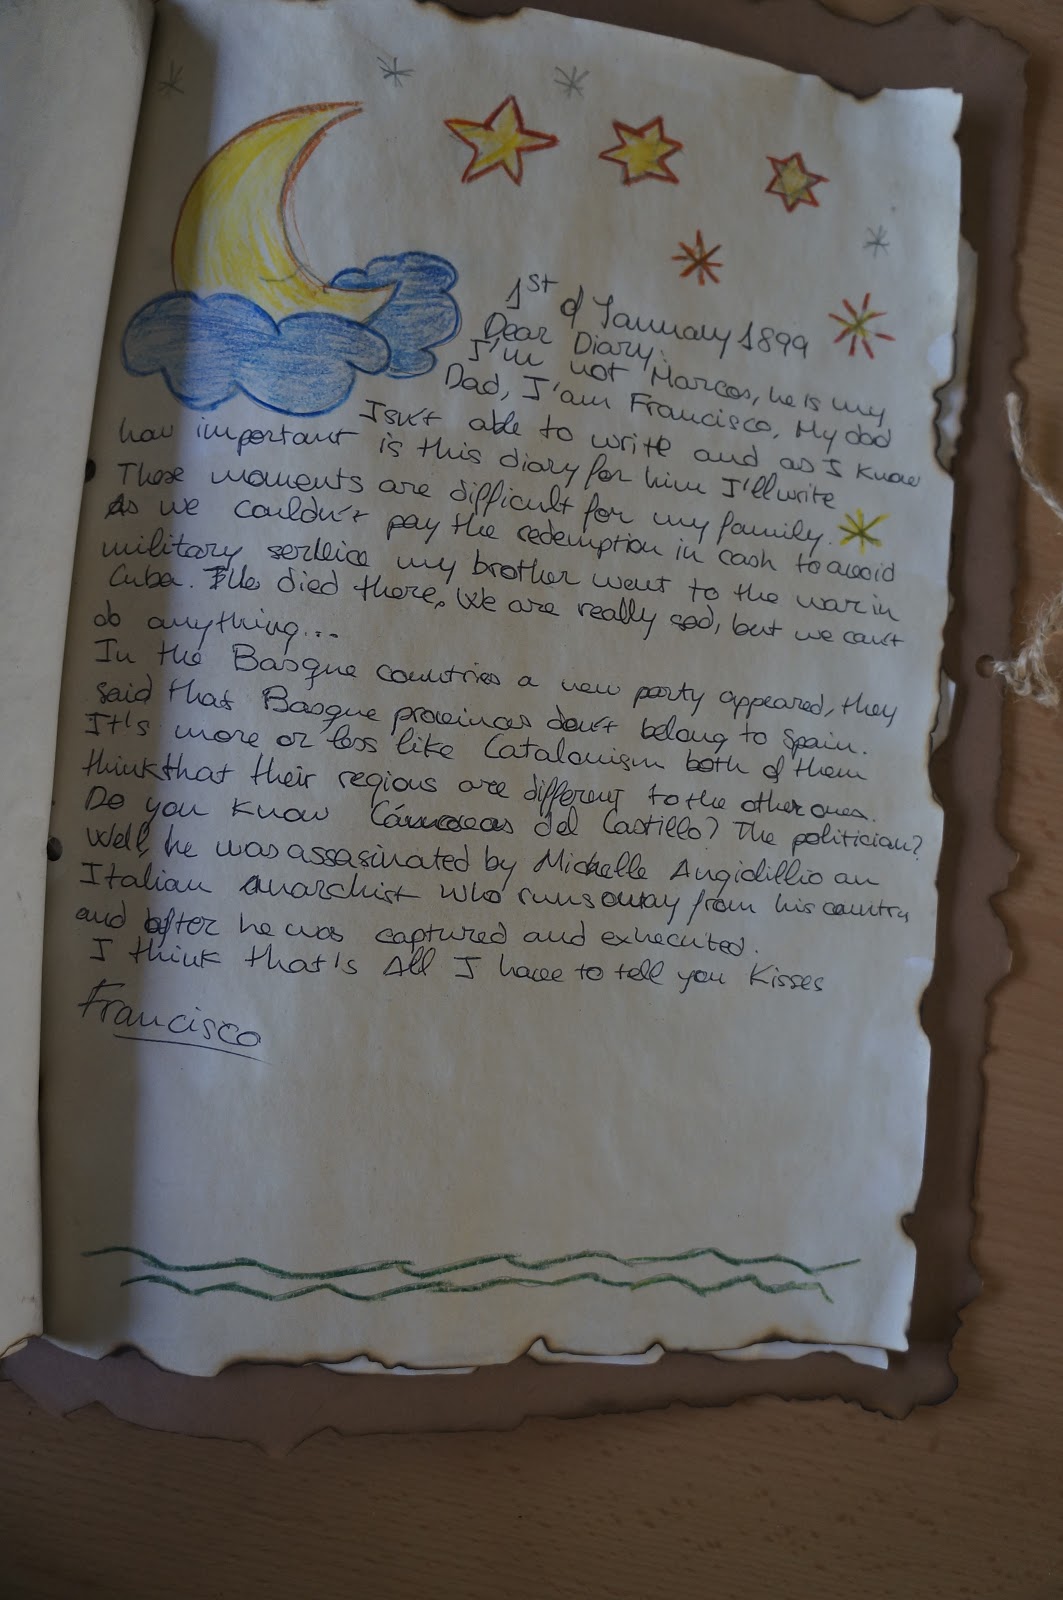 1st of January 1899
Dear Diary:
I'm not Marcos, he is my
Dad, I'am Francisco. My dad
Isn't able to write and as I know
how important is this diary for him I'll write
These moments are difficult for my family.
As we couldn't pay the redemption in cash to avoid
military service my brother went to the war in
Cuba. He died there. We are really sad, but we can't
do anything...
In the Basque countries a new party appeared, they
said that Basque provinces don't belong to Spain.
It's more or less like Catalanism both of them
think that their regions are different to the other ones.
Do you know Cánovas del Castillo? The politician?
Well, he was assasinated by Michelle Angidillio an
Italian anarchist who runs away from his country
and after he was captured and exhecuted.
I think that's All I have to tell you Kisses
Francisco